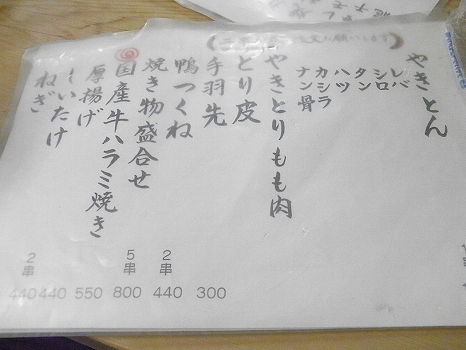 注文お願いします
やきとん
レバ
シロ
タン
ハツ
カシラ
ナン骨
やきとりもも肉
とり皮
手羽先
300
鴨つくね
2串
440
焼き物盛合せ
5串
800
国産牛ハラミ焼き
550
厚揚げ
440
しいたけ
2串
440
ねぎ